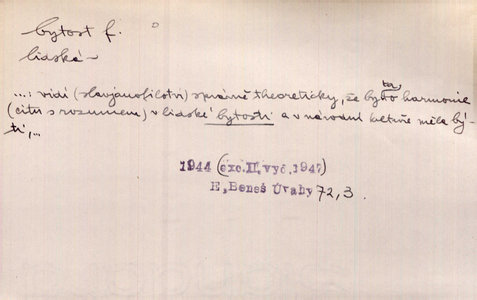 bytost f.
lidská –
...: vidí (slavjanofilství) správně theoreticky, že by ta harmonie
(citu s rozumem) v lidské bytosti a v národní kultuře měla bý-
ti,...
1944 (exc. II. vyč. 1947)
E. Beneš Úvahy 72, 3.